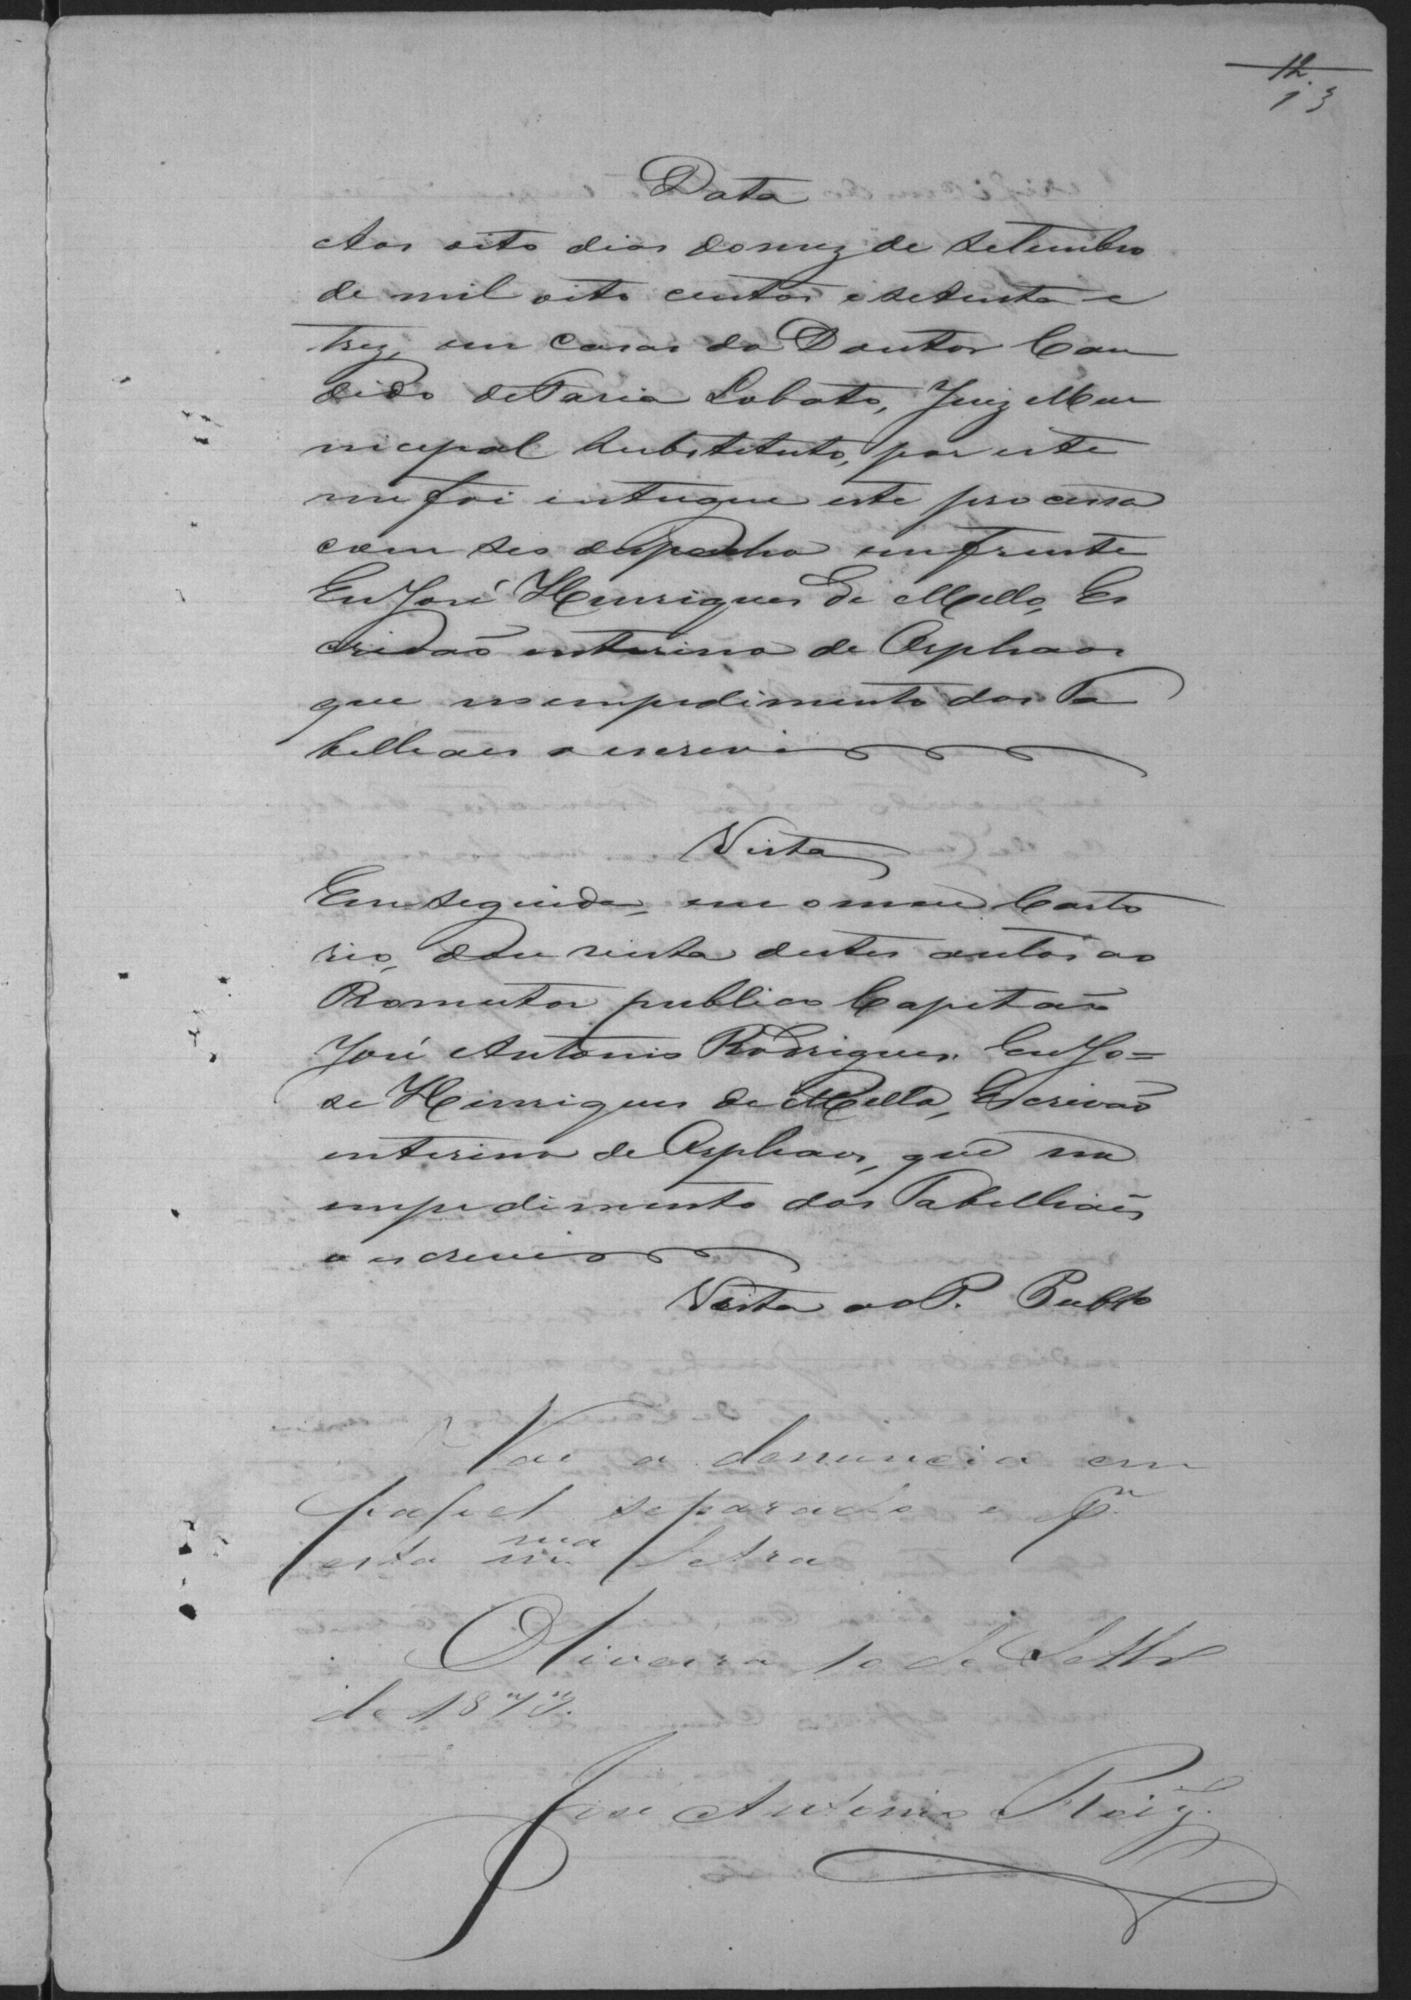 12
13
Data
Aos oito dias do mez de Setembro
de mil oito centos e setenta e
trez, em casas do Doutor Can
dido de Faria Lobato, Juiz Mu
nicipal Substituto, por este
me foi entregue este processo
com seo despacho em frente
Eu José Henriques de Mello, Es
crivão interino de Orphaos
que no impedimento dos Ta
belliaes o escrevi
Vista
Em seguida, em o meu Carto
rio, dou vista destes autos ao
Promotor publico Capitão
José Antonio Rodrigues. Eu Jo=
se Henriques de Mello, Escrivão
interino de Orphaos, que no
impedimento dos Tabelliaẽs
o escrevi
Vista ao P. Pubco
Vae a denuncia em
papel separado e pr
esta ma letra
Oliveira 10 de Setbro
de 1873.
José Antonio Roiz.